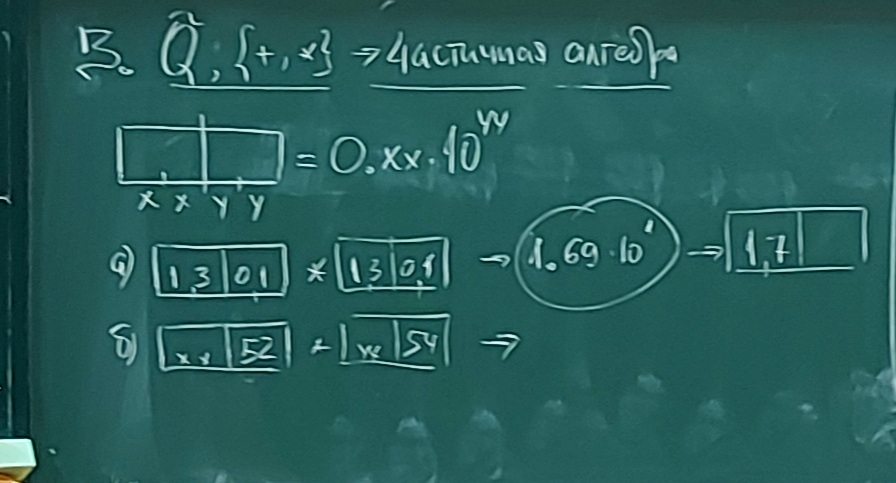 3. Q̃; {+, *} → частичная алгебра
= 0.xx·10^yy
x x y y
а) 1,3 0,1 * 1 3 0,1 → 1.69·10^1 → 1,7
б) x x 52 * 54 →